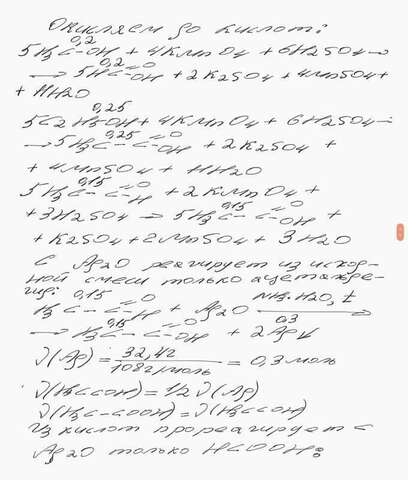 Окисляем до кислот:
0,2
5H3C-OH + 4KMnO4 + 6H2SO4 →
0,2 =O
→ 5HC-OH + 2K2SO4 + 4MnSO4 +
+ 11H2O
0,25
5C2H5OH + 4KMnO4 + 6H2SO4 →
0,25 =O
→ 5H3C-C-OH + 2K2SO4 +
+ 4MnSO4 + 11H2O
0,15 =O
5H3C-C-H + 2KMnO4 +
0,15 =O
+ 3H2SO4 → 5H3C-C-OH +
+ K2SO4 + 2MnSO4 + 3H2O
С Ag2O реагирует из исход-
ной смеси только ацетальде-
гид:
0,15 =O NH3·H2O, t
H3C-C-H + Ag2O →
0,15 =O 0,3
→ H3C-C-OH + 2Ag↓
ν(Ag) = 32,4г / 108г/моль = 0,3 моль
ν(H3CCOH) = 1/2 ν(Ag)
ν(H3C-COOH) = ν(H3CCOH)
Из кислот прореагирует с
Ag2O только HCOOH: